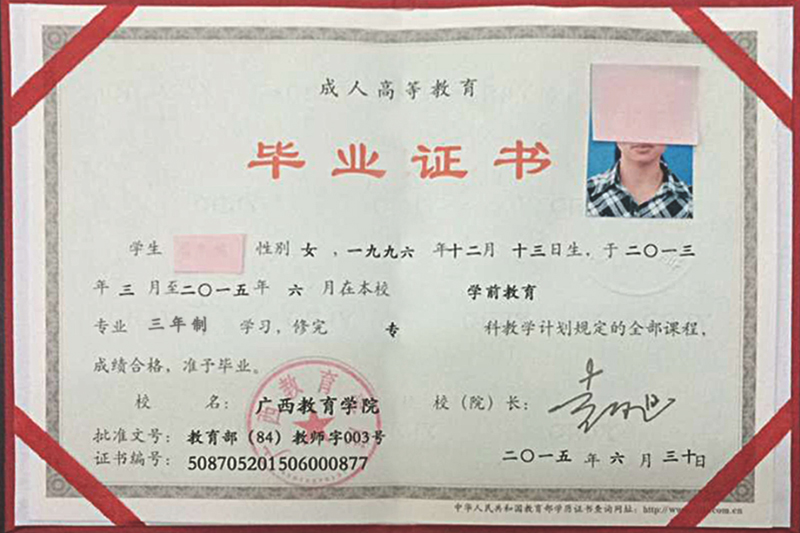 成人高等教育
毕业证书
学生 性别 女，一九九六 年十二月 十三日生，于二〇一三
年 三 月至二〇一五年 六 月在本校 学前教育
专业 三年制 学习，修完 专 科教学计划规定的全部课程，
成绩合格，准予毕业。
校 名：广西教育学院 校（院）长：
批准文号：教育部（84）教师字003号
证书编号：508705201506000877
二〇一五 年 六 月 三十日
中华人民共和国教育部学历证书查询网址：http://www. .com.cn